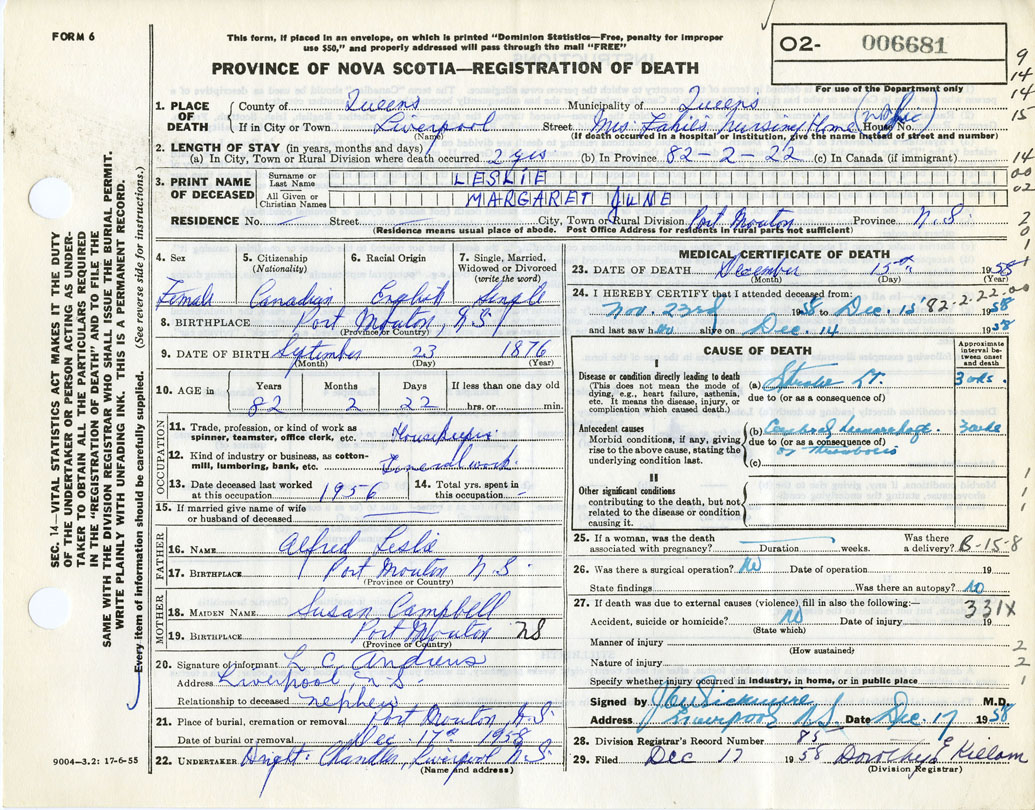 FORM 6
This form, if placed in an envelope, on which is printed "Dominion Statistics—Free, penalty for improper
use $50," and properly addressed will pass through the mail "FREE"
PROVINCE OF NOVA SCOTIA—REGISTRATION OF DEATH
O2- 006681
For use of the Department only
1. PLACE OF DEATH
County of Queens Municipality of Queens
If in City or Town Liverpool Street Mrs. Fahie's Nursing Home House No.
(Name) (If death occurred in a hospital or institution, give the name instead of street and number)
2. LENGTH OF STAY (in years, months and days)
(a) In City, Town or Rural Division where death occurred 2 yrs (b) In Province 82-2-22 (c) In Canada (if immigrant)
3. PRINT NAME OF DECEASED
Surname or Last Name LESLIE
All Given or Christian Names MARGARET JUNE
RESIDENCE No. Street City, Town or Rural Division Port Mouton Province N.S.
(Residence means usual place of abode. Post Office Address for residents in rural parts not sufficient)
4. Sex Female
5. Citizenship (Nationality) Canadian
6. Racial Origin English
7. Single, Married, Widowed or Divorced (write the word) Single
8. BIRTHPLACE Port Mouton, N.S.
(Province or Country)
9. DATE OF BIRTH September 23 1876
(Month) (Day) (Year)
10. AGE in Years Months Days If less than one day old
82 2 22 hrs. or min.
OCCUPATION
11. Trade, profession, or kind of work as spinner, teamster, office clerk, etc. Housekeeper
12. Kind of industry or business, as cotton-mill, lumbering, bank, etc. General work
13. Date deceased last worked at this occupation 1956
14. Total yrs. spent in this occupation –
15. If married give name of wife or husband of deceased
FATHER
16. NAME Alfred Leslie
17. BIRTHPLACE Port Mouton N.S.
(Province or Country)
MOTHER
18. MAIDEN NAME Susan Campbell
19. BIRTHPLACE Port Mouton NS
(Province or Country)
20. Signature of informant L C Andrews
Address Liverpool, N.S.
Relationship to deceased nephew
21. Place of burial, cremation or removal Port Mouton, N.S.
Date of burial or removal Dec. 17th 1958
22. UNDERTAKER Chandler, Liverpool N.S.
(Name and address)
9004—3.2: 17-6-55
SEC. 14—VITAL STATISTICS ACT MAKES IT THE DUTY
OF THE UNDERTAKER OR PERSON ACTING AS UNDER-
TAKER TO OBTAIN ALL THE PARTICULARS REQUIRED
IN THE "REGISTRATION OF DEATH" AND TO FILE THE
SAME WITH THE DIVISION REGISTRAR WHO SHALL ISSUE THE BURIAL PERMIT.
WRITE PLAINLY WITH UNFADING INK. THIS IS A PERMANENT RECORD.
Every item of information should be carefully supplied. (See reverse side for instructions.)
MEDICAL CERTIFICATE OF DEATH
23. DATE OF DEATH December 15th 1958
(Month) (Day) (Year)
24. I HEREBY CERTIFY that I attended deceased from:
Nov. 23rd 1958 to Dec. 15 1958
82-2-22-00
and last saw her alive on Dec. 14 1958
CAUSE OF DEATH
Approximate interval between onset and death
I
Disease or condition directly leading to death
(This does not mean the mode of dying, e.g., heart failure, asthenia, etc. It means the disease, injury, or complication which caused death.)
(a) Stroke Lt.
due to (or as a consequence of)
Antecedent causes
Morbid conditions, if any, giving rise to the above cause, stating the underlying condition last.
(b) Cerebral hemorrhage
due to (or as a consequence of)
or thrombosis
(c)
II
Other significant conditions
contributing to the death, but not related to the disease or condition causing it.
25. If a woman, was the death associated with pregnancy? Duration weeks. Was there a delivery? B-15-8
26. Was there a surgical operation? No Date of operation 19
State findings Was there an autopsy? NO
27. If death was due to external causes (violence), fill in also the following:— 331X
Accident, suicide or homicide? NO Date of injury 19
(State which)
Manner of injury
(How sustained)
Nature of injury
Specify whether injury occurred in industry, in home, or in public place
Signed by M.D.
Address Liverpool N.S. Date Dec. 17 1958
28. Division Registrar's Record Number 85
29. Filed Dec 17 1958 Dorothy E Killam
(Division Registrar)